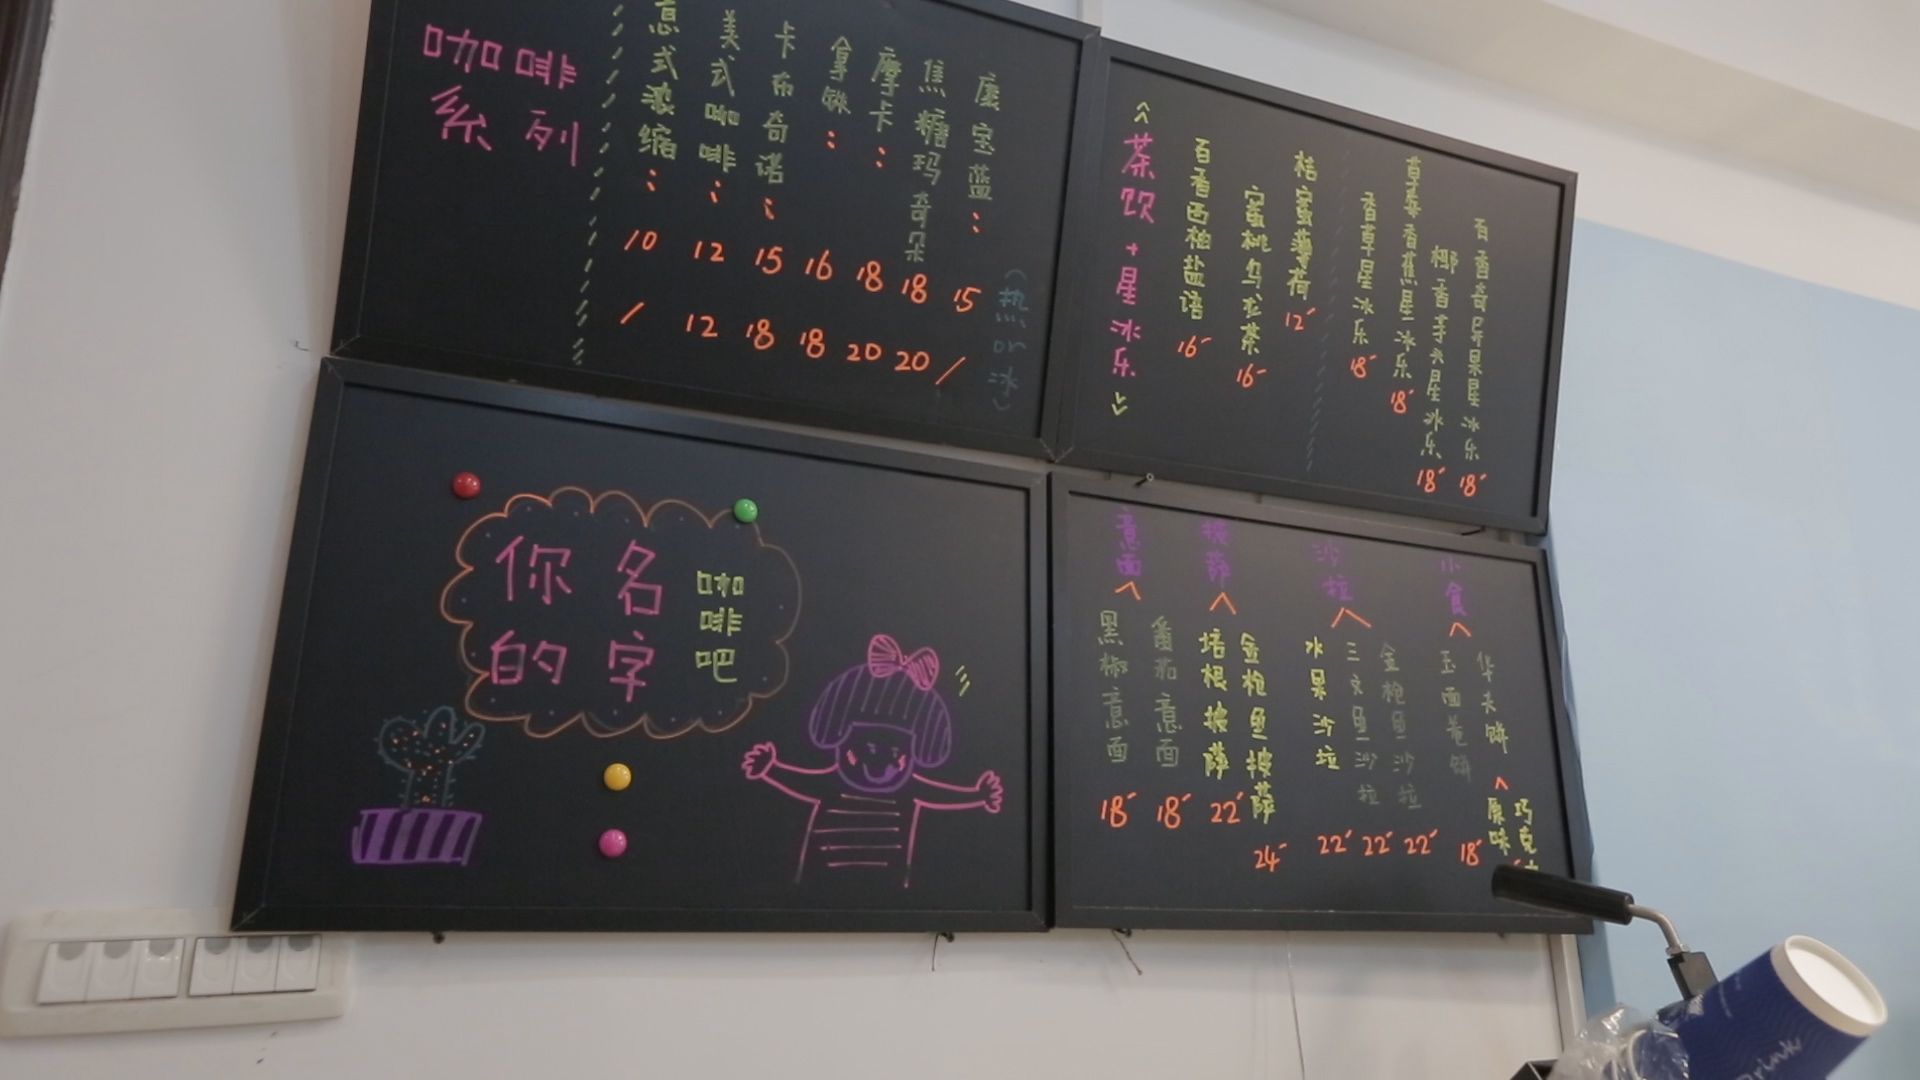 咖啡
系列
意式浓缩：10 /
美式咖啡：12 12
卡布奇诺：15 18
拿铁：16 18
摩卡：18 20
焦糖玛奇朵 18 20
康宝蓝：15 /
（热or冰）
茶饮+星冰乐
百香西柚盐语 16
蜜桃乌龙茶 16
桔蜜薄荷 12
香草星冰乐 18
草莓香蕉星冰乐 18
椰香芋头星冰乐 18
百香奇异果星冰乐 18
你的
名字
咖啡吧
意面
黑椒意面 18
番茄意面 18
披萨
培根披萨 22
金枪鱼披萨 24
沙拉
水果沙拉 22
三文鱼沙拉 22
金枪鱼沙拉 22
小食
18
华夫饼
原味
巧克
Drink